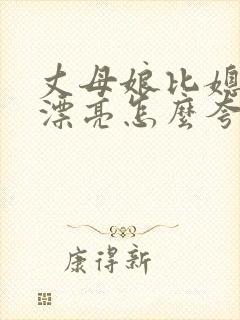 丈母娘比媳
漂亮怎麼夸
康得新